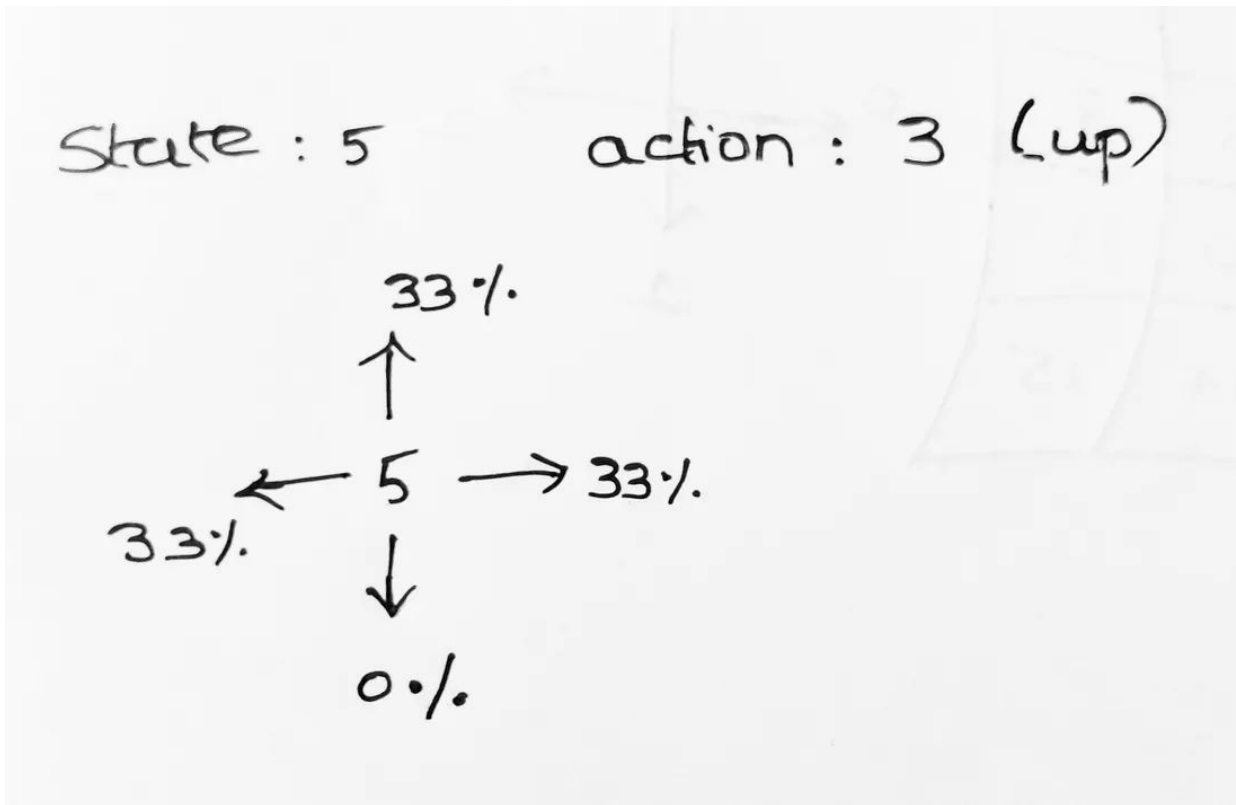 State : 5 action : 3 (up)
33%
5 33%
33%
0%